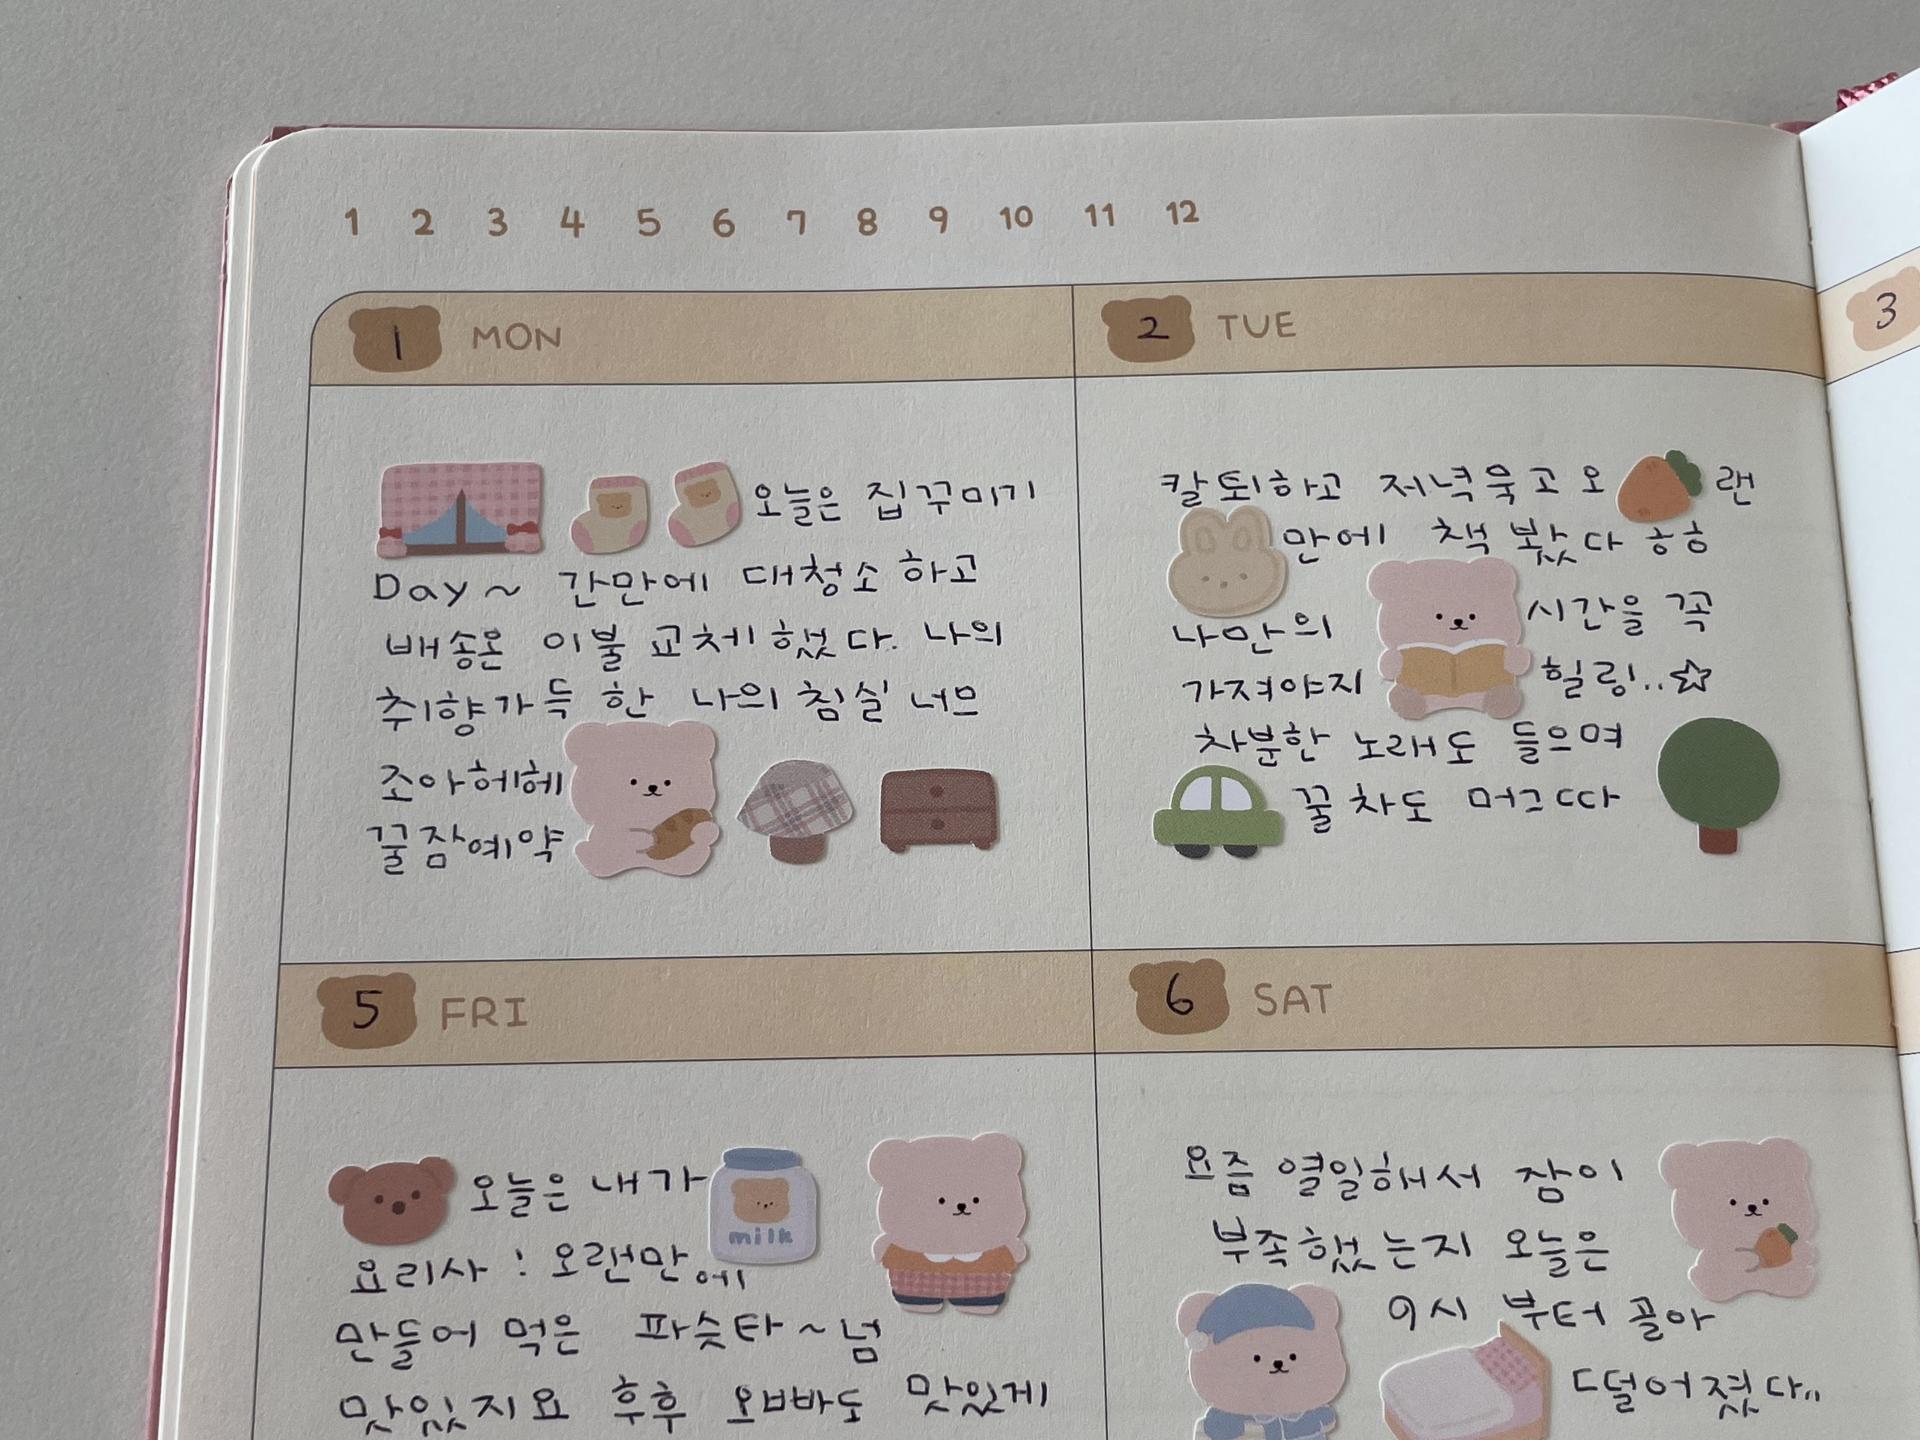 1 2 3 4 5 6 7 8 9 10 11 12
1 MON
오늘은 집꾸미기
Day~ 간만에 대청소하고
배송온 이불 교체했다. 나의
취향가득 한 나의 침실 너므
조아헤헤
꿀잠예약
2 TUE
칼퇴하고 저녁묵고 오랜
만에 책 봤다 ㅎㅎ
나만의 시간을 꼭
가져야지 힐링..☆
차분한 노래도 들으며
꿀차도 머그따
3
5 FRI
오늘은 내가
milk
요리사! 오랜만에
만들어 먹은 파슷타~넘
맛있지요 후후 오빠도 맛있게
6 SAT
요즘 열일해서 잠이
부족했는지 오늘은
9시 부터 골아
떨어졌다..